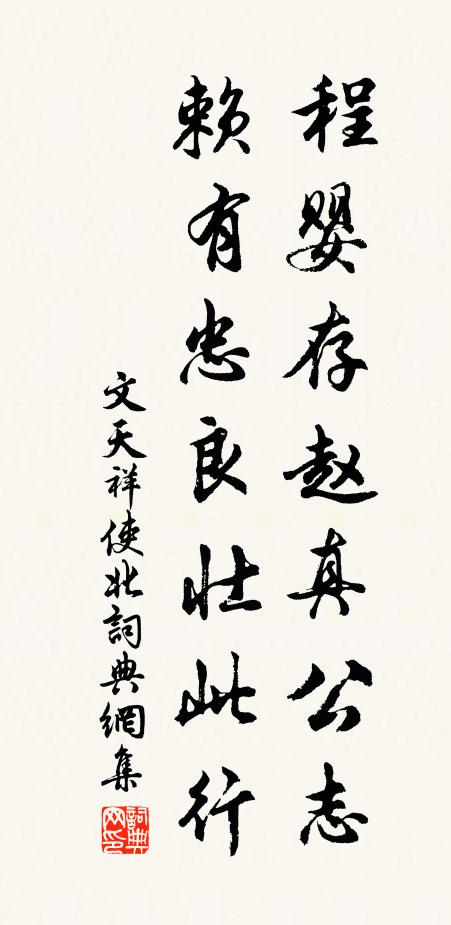 程婴存赵真公志
赖有忠良壮此行
文天祥使北詞典網集
詞典网印